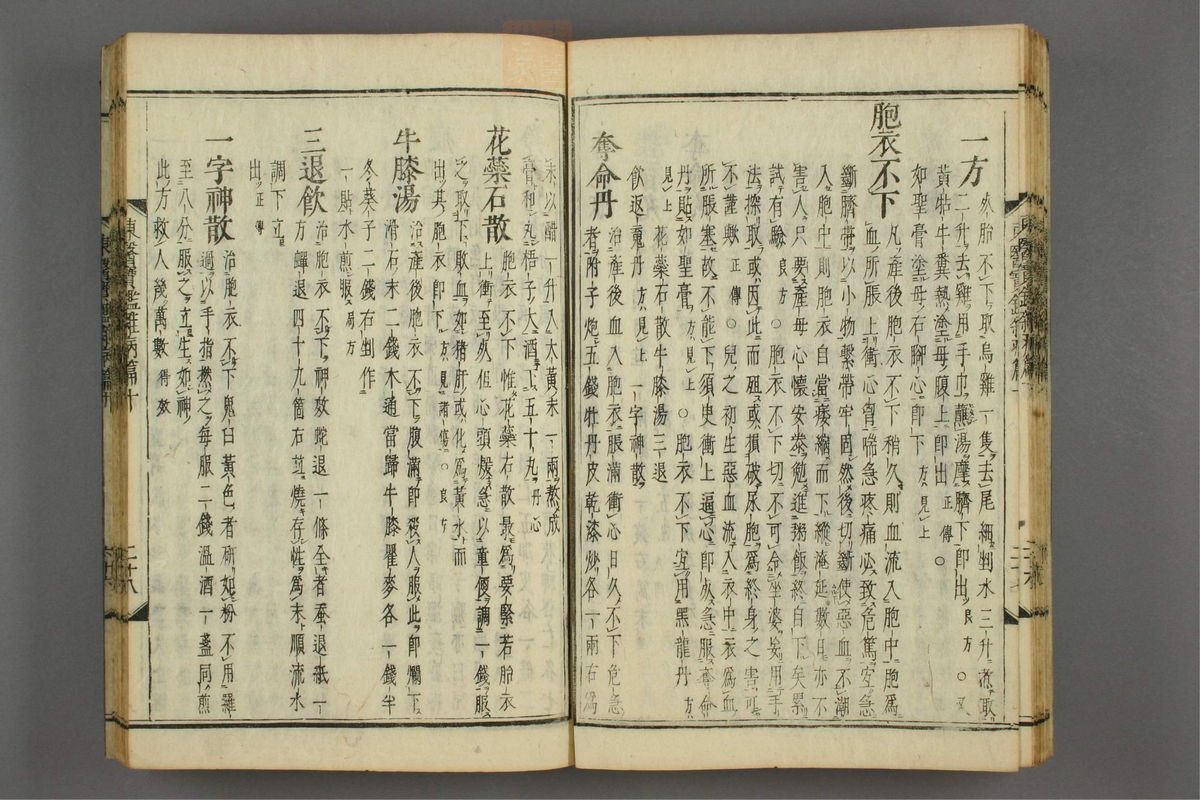 一方 死胎不下取烏雞一隻去尾細剉水三升煮取
二升去雞用手巾蘸湯摩臍下即出 良方 ○又
黃牯牛糞熱塗母腹上即出 正傳 ○
如聖膏塗母右脚心即下 方見上
胞衣不下 凡產後胞衣不下稍久則血流入胞中胞爲
血所脹上衝心胷喘急疼痛必致危篤宜急
斷臍帶以小物繫帶牢固然後切斷使惡血不潮
入胞中則胞衣自當痿縮而下縱淹延數日亦不
害人只要產母心懷安泰勉進粥飯終自下矣累
試有驗 良方 ○胞衣不下切不可令坐婆妄用手
法探取或因此而殂或損破尿胞爲終身之害可
不謹歟 正傳 ○兒之初生惡血流入衣中衣爲血
所脹塞故不能下須臾衝上逼心即死急服奪命
丹貼如聖膏 方見上 ○胞衣不下宜用黑龍丹 方
見上 花蘂石散牛膝湯三退
飮返魂丹 方見上 一字神散
奪命丹 治產後血入胞衣脹滿衝心日久不下危急
者附子炮五錢牡丹皮乾漆炒各一兩右爲
末以醋一升入大黃末一兩熬成
膏和丸梧子大酒下五十丸 丹心
花蘂石散 胞衣不下惟花蘂石散最爲要緊若胎衣
上衝至死但心頭煖急以童便調一錢服
之取下敗血如猪肝或化爲黃水而
出其胞衣即下 方見諸傷 ○良方
牛膝湯 治產後胞衣不下腹滿即殺人服此即爛下
滑石末二錢木通當歸牛膝瞿麥各一錢半
冬葵子二錢右剉作
一貼水煎服 局方
三退飮 治胞衣不下神效蛇退一條全者蚕退紙一
方蟬退四十九箇右並燒存性爲末順流水
調下立
出 正傳
一字神散 治胞衣不下鬼臼黃色者硏如粉不用羅
過以手指撚之每服二錢溫酒一盞同煎
至八分服之立生如神
此方救人幾萬數 得效
東醫寶鑑雜病篇十
二十八